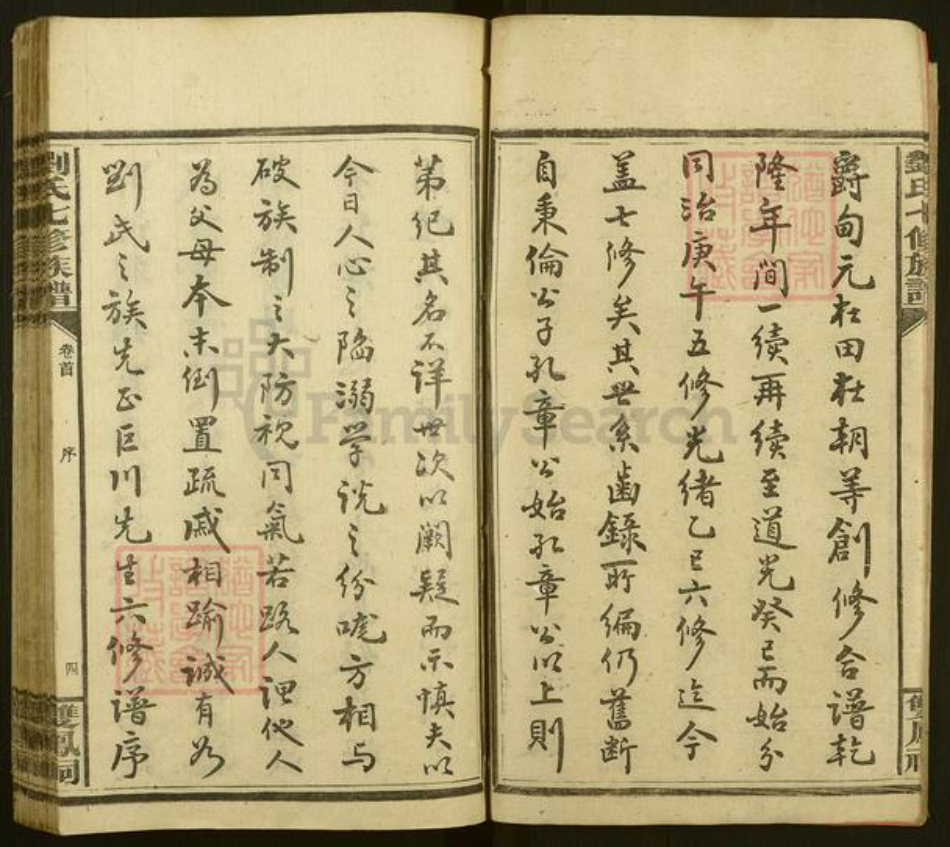 劉氏七修族譜
爵甸元在田在朝等創修合譜乾
隆年間一續再續至道光癸巳而始分
同治庚午五修光緒乙巳六修迄今
蓋七修矣其世系齒錄所編仍舊斷
自秉倫公子孔章公始孔章公以上則
第紀其名不詳世次以闕疑而示慎夫以
今日人心之陷溺學說之紛嘵方相与
破族制之大防視同氣若路人謂他人
為父母本末倒置疏戚相踰誠有如
劉氏之族先正巨川先生六修譜序
劉氏七修族譜
卷首
序
四
雙鳳祠
FamilySearch